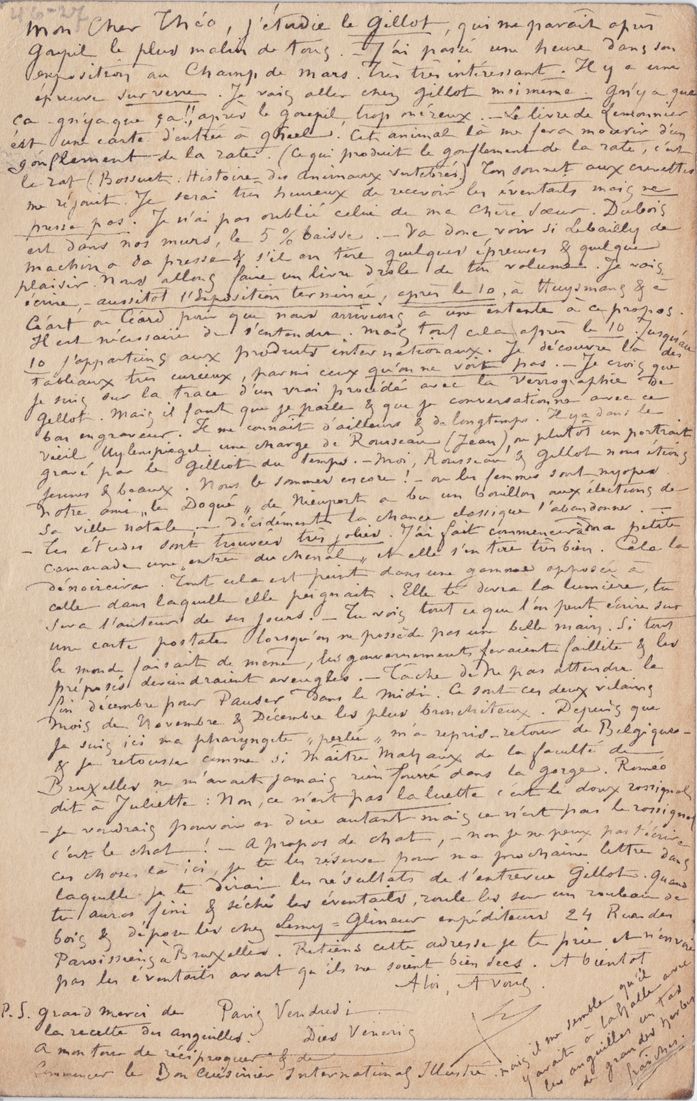 46-27
Mon Cher Théo, j'étudie le Gillot, qui me paraît après
Goupil le plus malin de tous. - J'ai passé une heure dans son
exposition au Champ de mars. Très très intéressant. Il y a une
épreuve sur verre. Je vais aller chez Gillot moi même. Gn'y a que
ça - gn'ya que ça!! après le goupil, trop onéreux. - Le livre de Lemonnier
est une carte d'entrée à Gheel. Cet animal là me fera mourir d'un
gonflement de la rate. (Ce qui produit le gonflement de la rate, c'est
le rat (Bossuet. Histoire des animaux vertébrés) Ton sonnet aux crevettes
me réjouit. Je serai très heureux de recevoir les éventails mais ne
presse pas. Je n'ai pas oublié celui de ma chère sœur. Dubois
est dans nos murs, le 5% baisse. - Va donc voir si Lebailly de
machin a sa presse & s'il en tire quelques épreuves & quelque
plaisir. Nous allons faire un livre drôle de ton volume. Je vais
écrire, aussitôt l'Exposition terminée, après le 10, à Huysmans & à
Céart ou Céard pour que nous arrivions à une entente à ce propos.
Il est nécessaire de s'entendre. Mais tout cela après le 10. Jusqu'au
10 j'appartiens aux produits internationaux. Je découvre là des
tableaux très curieux, parmi ceux qu'on ne voit pas. - Je crois que
je suis sur la trace d'un vrai procédé avec la verrographie de
Gillot. Mais il faut que je parle & que je conversationne avec ce
bon engraveur. Il me connaît d'ailleurs & de longtemps. Il y a dans le
vieil Uylenspiegel une charge de Rousseau (Jean) ou plutôt un portrait
gravé par le Gilliot du temps. - Moi, Rousseau & Gillot nous étions
jeunes & beaux. Nous le sommes encore! - ou les femmes sont myopes.
Notre ami "le Dogue" de Nieuport a bu un bouillon aux élections de
sa ville natale. - décidément la chance classique l'abandonne. -
- Les études sont trouvées très jolies. J'ai fait commencer à ma petite
camarade une "entrée du chenal" et elle s'en tire très bien. Cela la
dénoircira. Tout cela est peint dans une gamme opposée à
celle dans laquelle elle peignait. Elle te devra la lumière, tu
seras l'auteur de ses jours. - Tu vois tout ce que l'on peut écrire sur
une carte postale lorsqu'on ne possède pas une belle main. Si tout
le monde faisait de même, les gouvernements feraient faillite & les
préposés deviendraient aveugles. - Tâche de ne pas attendre la
fin décembre pour Pauser dans le midi. Ce sont ces deux vilains
mois de Novembre & Décembre les plus bronchiteux. Depuis que
je suis ici ma pharyngite "perlée" m'a repris - retour de Belgique -
& je retousse comme si Maître de la faculté de
Bruxelles ne m'avait jamais rien fourré dans la gorge. Roméo
dit à Juliette: Non, ce n'est pas la luette c'est le doux rossignol
- je voudrais pouvoir en dire autant mais ce n'est pas le rossignol
c'est le chat! - A propos de chat, - non je ne peux pas t'écrire
ces choses là ici, je te les réserve pour ma prochaine lettre dans
laquelle je te dirai les résultats de l'entrevue Gillot. Quand
tu auras fini & séché les éventails, roule les sur un rouleau de
bois & dépose les chez Lemy-Glineur expéditeurs 24 Rue des
Paroissiens à Bruxelles. Retiens cette adresse je te prie, et n'envoie
pas les éventails avant qu'ils ne soient bien secs. A bientôt
A toi, A vous.
Paris Vendredi
Dies Veneris
P.S. grand merci de
la recette des anguilles.
A mon tour de réciproquer & de
commencer le Bon Cuisinier International Illustré. mais il me semble qu'il
y avait à la halle avec
les anguilles un tas
de grandes herbes
fraîches.